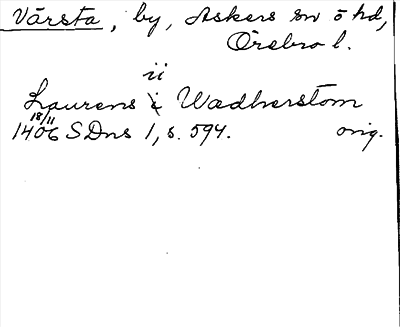 Vårsta, by, Askers sn o hd,
Örebro l.
ii
Laurens i Wadherstom
18/11
1406 SDns 1, s. 594. orig.